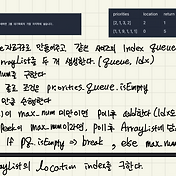 priorities location return
[2, 1, 3, 2] 2 1
[1, 1, 9, 1, 1, 1] 0 5
만들어주고 같은 사이즈 Index Queue
ArrayList를 두 개 생성한다. (Queue, Idx)
num을 구한다
종료 조건은 priorities.Queue.isEmpty
만큼 순회한다
max_num 미만이면 Poll후 add한다 (Idx도
Peek이 max_num이라면, Poll후 ArrayList에 담
If pq.isEmpty → break, else max_num
ArrayList의 location index를 구한다.